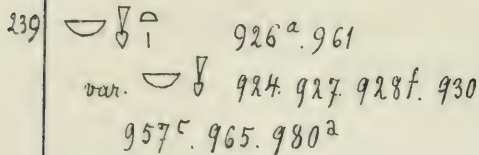 239 𓎟 𓍋 𓏏𓏤 926ᵃ. 961
var. 𓎟 𓍋 924. 927. 928f. 930
957ᶜ. 965. 980ᵃ